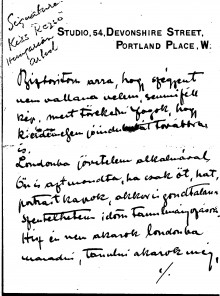 Signature
Kézi Rezső
Hungarian
Artist
STUDIO, 54, DEVONSHIRE STREET,
PORTLAND PLACE, W.
Biztosítom arra, hogy szégyent
nem vallana velem, semmiféle
kép, mert törekedni fogok, hogy
kiérdemeljem
is.
Londonba jövetelem alkalmával
Ön is azt mondta, ha csak öt, hat,
portrait kapok, akkor is gondtalan
szentelhetem időm tanulmányozásra
Hisz én nem akarok Londonba
maradni, tanulni akarok még,